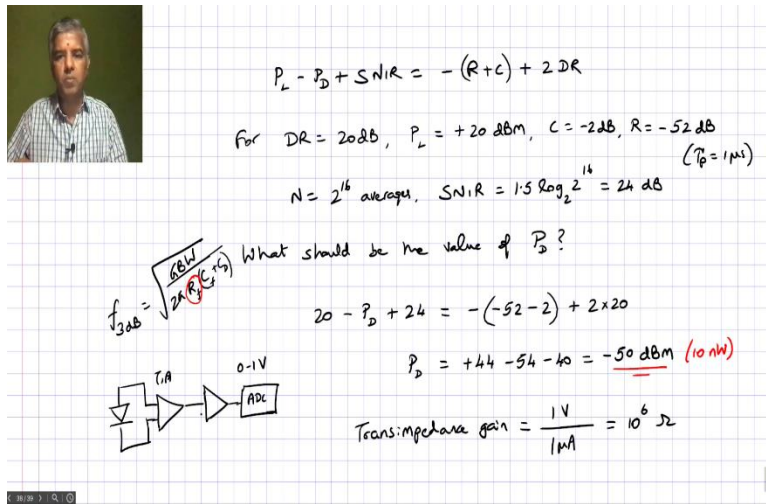 P_L - P_D + SNIR = - (R+C) + 2 DR
For DR = 20dB, P_L = +20 dBm, C = -2dB, R = -52 dB
(T_P = 1 μs)
N = 2^16 averages, SNIR = 1.5 log_2 2^16 = 24 dB
What should be the value of P_D ?
f_3dB = √(GBW / 2π R_f (C_f + C_D))
20 - P_D + 24 = - (-52 - 2) + 2×20
P_D = +44 - 54 - 40 = -50 dBm (10 nW)
TIA 0-1V
ADC
Transimpedance gain = 1V / 1μA = 10^6 Ω
38/39